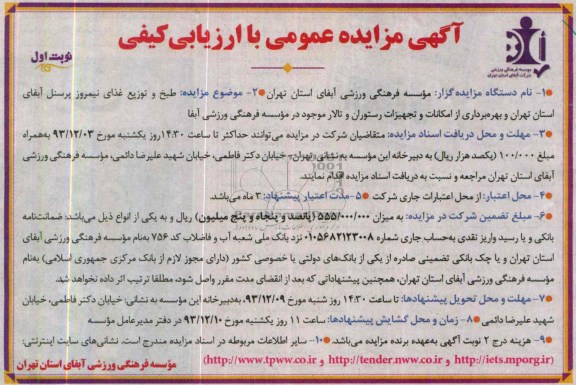 آگهی مزایده عمومی با ارزیابی کیفی
نوبت اول
موسسه فرهنگی ورزشی
شرکت آبفای استان تهران
۱- نام دستگاه مزایده گزار: مؤسسه فرهنگی ورزشی آبفای استان تهران ۲- موضوع مزایده: طبخ و توزیع غذای نیمروز پرسنل آبفای
استان تهران و بهره‌برداری از امکانات و تجهیزات رستوران و تالار موجود در مؤسسه فرهنگی ورزشی آبفا
۳- مهلت و محل دریافت اسناد مزایده: متقاضیان شرکت در مزایده می‌توانند حداکثر تا ساعت ۱۴:۳۰ روز یکشنبه مورخ ۹۳/۱۲/۰۳ به‌همراه
مبلغ ۱۰۰/۰۰۰ (یکصد هزار ریال) به دبیرخانه این مؤسسه به نشانی تهران، خیابان دکتر فاطمی، خیابان شهید علیرضا دائمی، مؤسسه فرهنگی ورزشی
آبفای استان تهران مراجعه و نسبت به دریافت اسناد مزایده اقدام نمایند.
۴- محل اعتبار: از محل اعتبارات جاری شرکت ۵- مدت اعتبار پیشنهاد: ۳ ماه می‌باشد.
۶- مبلغ تضمین شرکت در مزایده: به میزان ۵۵۵/۰۰۰/۰۰۰ (پانصد و پنجاه و پنج میلیون) ریال و به یکی از انواع ذیل می‌باشد: ضمانتنامه
بانکی و یا رسید واریز نقدی به‌حساب جاری شماره ۰۱۰۵۶۸۲۱۲۳۰۰۸ نزد بانک ملی شعبه آب و فاضلاب کد ۷۵۶ به‌نام مؤسسه فرهنگی ورزشی آبفای
استان تهران و یا چک بانکی تضمینی صادره از یکی از بانک‌های دولتی یا خصوصی کشور (دارای مجوز لازم از بانک مرکزی جمهوری اسلامی) به‌نام
مؤسسه فرهنگی ورزشی آبفای استان تهران، همچنین پیشنهاداتی که بعد از انقضای مدت مقرر واصل شود، مطلقا ترتیب اثر داده نخواهد شد.
۷- مهلت و محل تحویل پیشنهادها: تا ساعت ۱۴:۳۰ روز شنبه مورخ ۹۳/۱۲/۰۹ به‌دبیرخانه این مؤسسه به نشانی: خیابان دکتر فاطمی، خیابان
شهید علیرضا دائمی ۸- زمان و محل گشایش پیشنهادها: ساعت ۱۱ روز یکشنبه مورخ ۹۳/۱۲/۱۰ در دفتر مدیرعامل مؤسسه
۹- هزینه درج ۲ نوبت آگهی به‌عهده برنده مزایده می‌باشد. ۱۰- سایر اطلاعات مربوطه در اسناد مزایده مندرج است. نشانی‌های سایت اینترنتی:
(http://iets.mporg.ir و http://tender.nww.co.ir و http://www.tpww.co.ir)
مؤسسه فرهنگی ورزشی آبفای استان تهران